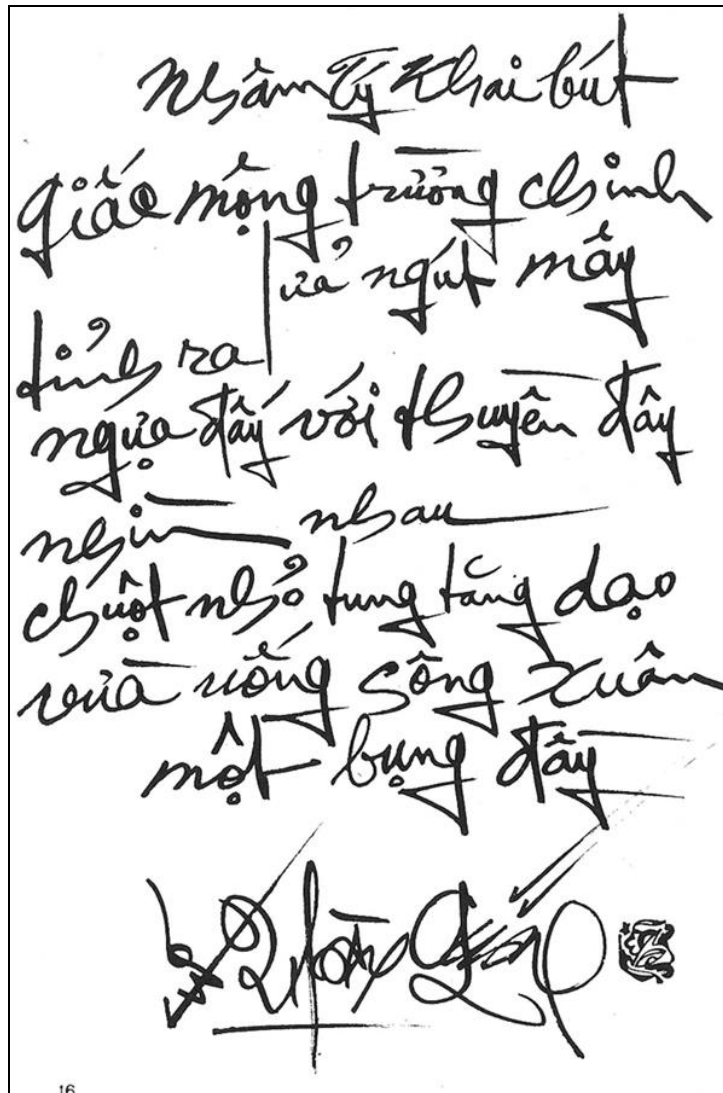 Nhâm Tý Khai bút
giấc mộng trường chinh
lửa ngút mây
tỉnh ra
ngựa đấy với thuyền đây
nhìn nhau
chuột nhỏ tung tăng dạo
vừa uống sông xuân
một bụng đầy
16